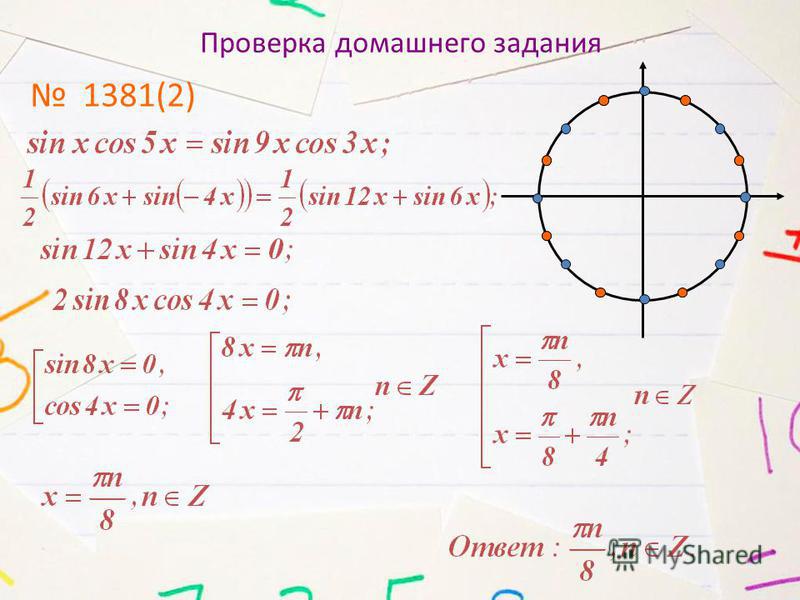 Проверка домашнего задания
№ 1381(2)
sin x cos 5x = sin 9x cos 3x;
1/2 (sin 6x + sin(−4x)) = 1/2 (sin 12x + sin 6x);
sin 12x + sin 4x = 0;
2 sin 8x cos 4x = 0;
[ sin 8x = 0,
cos 4x = 0;
[ 8x = πn,
4x = π/2 + πn; n ∈ Z
[ x = πn/8,
x = π/8 + πn/4; n ∈ Z
x = πn/8, n ∈ Z
Ответ: πn/8, n ∈ Z
MyShared